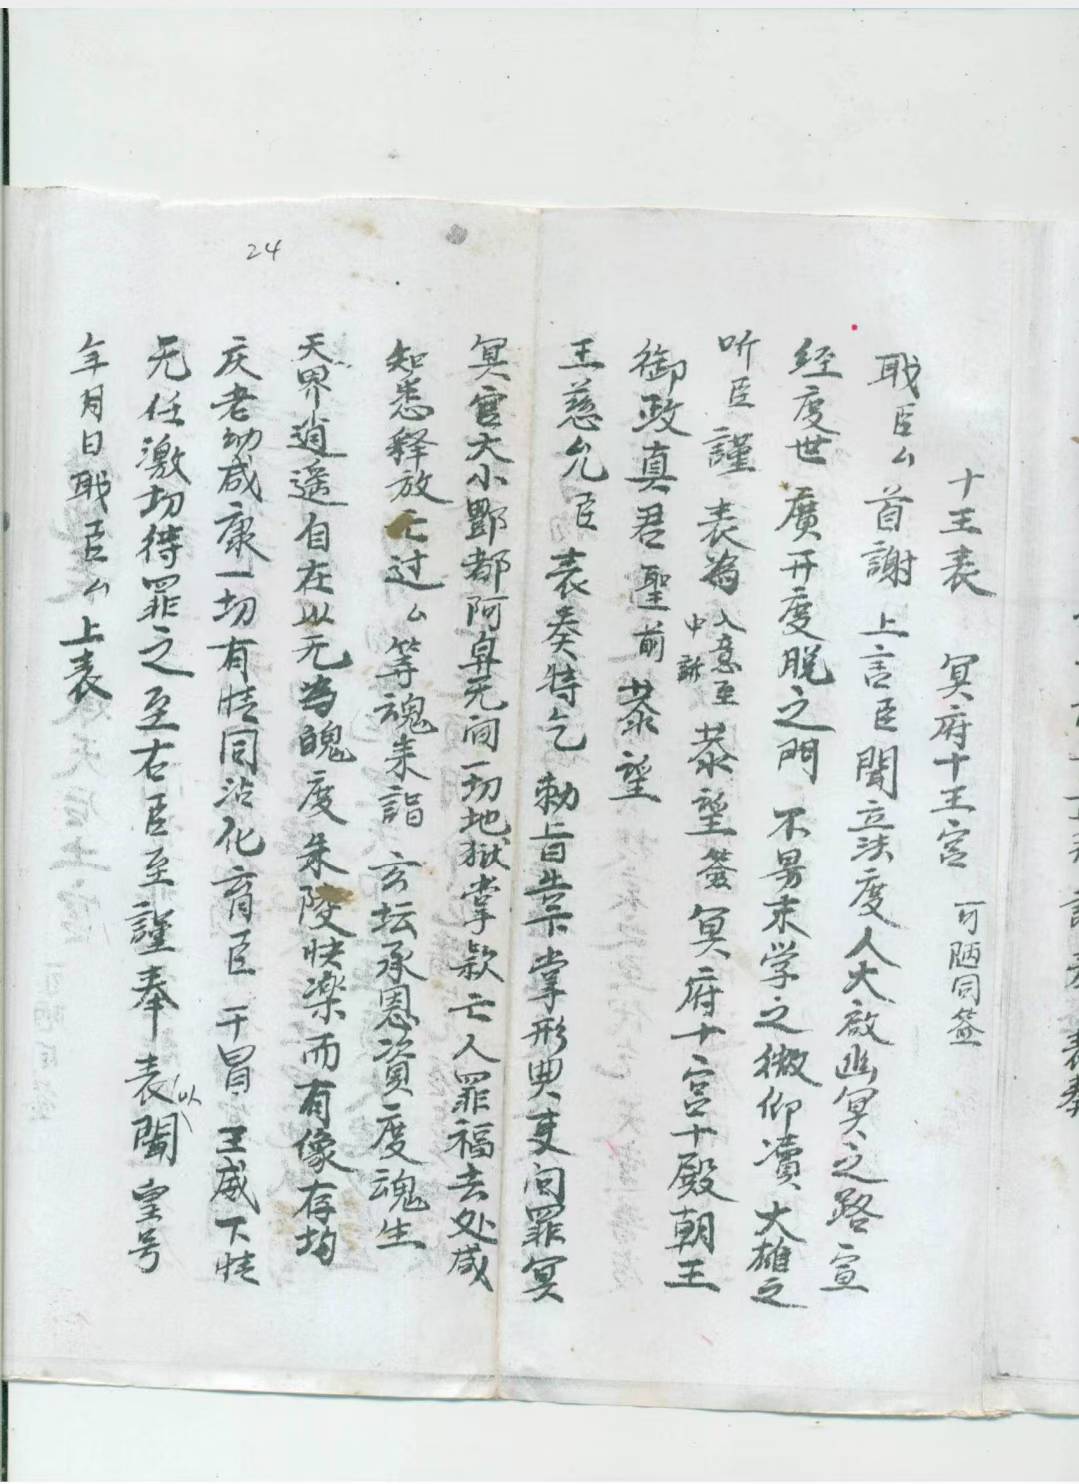 十王表 冥府十王宫 可陋同签
职臣厶 首謝 上言臣聞立法度人大啟幽冥之路宣
经度世 廣开度脱之門 不易末学之微仰瀆大雄之
听臣謹 表為 入意至 中諕 恭望簽冥府十宫十殿朝王
御政真君聖前 恭望
王慈允臣 表奏特乞 勅旨告示掌形典吏问罪冥
冥官大小酆都阿鼻无间一切地獄掌欵亡人罪福去处咸
知悉释放亡过厶等魂来詣 玄坛承恩資度魂生
天界逍遥自在以无為魄度朱陵快楽而有像存均
庆老幼咸康一切有情同沾化育臣 干冒 王威下情
无任激切待罪之至右臣至謹奉 表以聞 皇号
年月日职臣厶上表
24